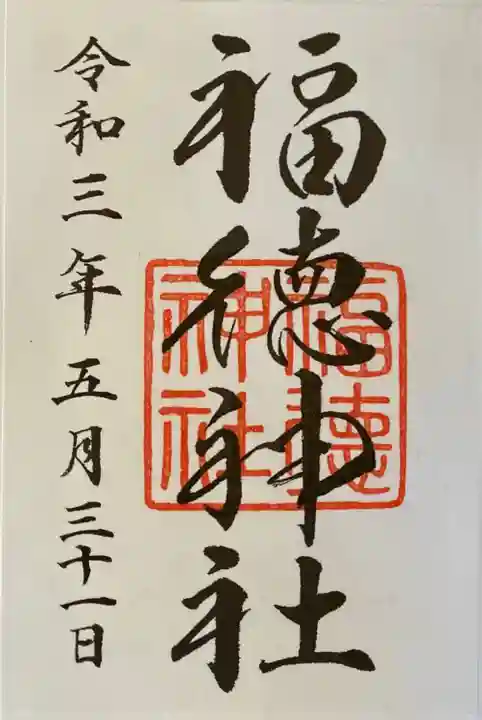 福徳神社
福徳神社
令和三年五月三十一日